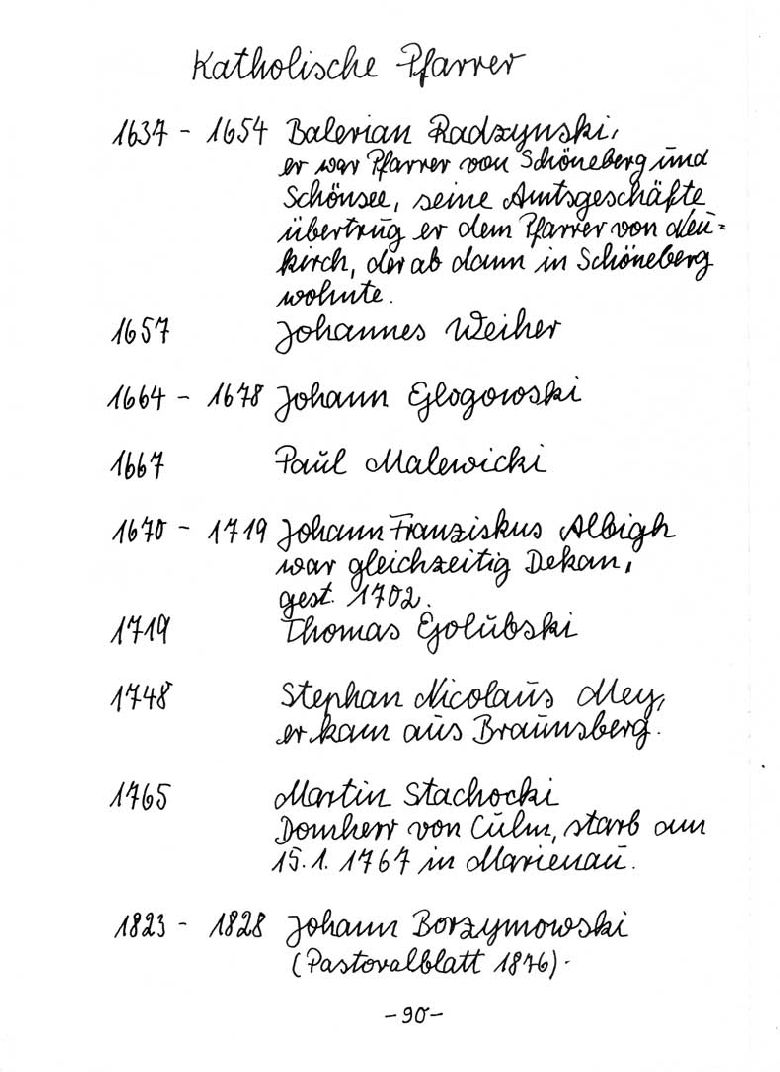 Katholische Pfarrer
1637 - 1654 Balerian Radzynski,
er war Pfarrer von Schöneberg und
Schönsee, seine Amtsgeschäfte
übertrug er dem Pfarrer von Neu=
kirch, der ab dann in Schöneberg
wohnte.
1657 Johannes Weiher
1664 - 1678 Johann Glogowski
1667 Paul Malewicki
1670 - 1719 Johann Franziskus Albigh
war gleichzeitig Dekan,
gest. 1702.
1719 Thomas Golubski
1748 Stephan Nicolaus Mey,
er kam aus Braunsberg.
1765 Martin Stachocki
Domherr von Culm, starb am
15.1. 1767 in Marienau.
1823 - 1828 Johann Borzymowski
(Pastoralblatt 1876).
-90-